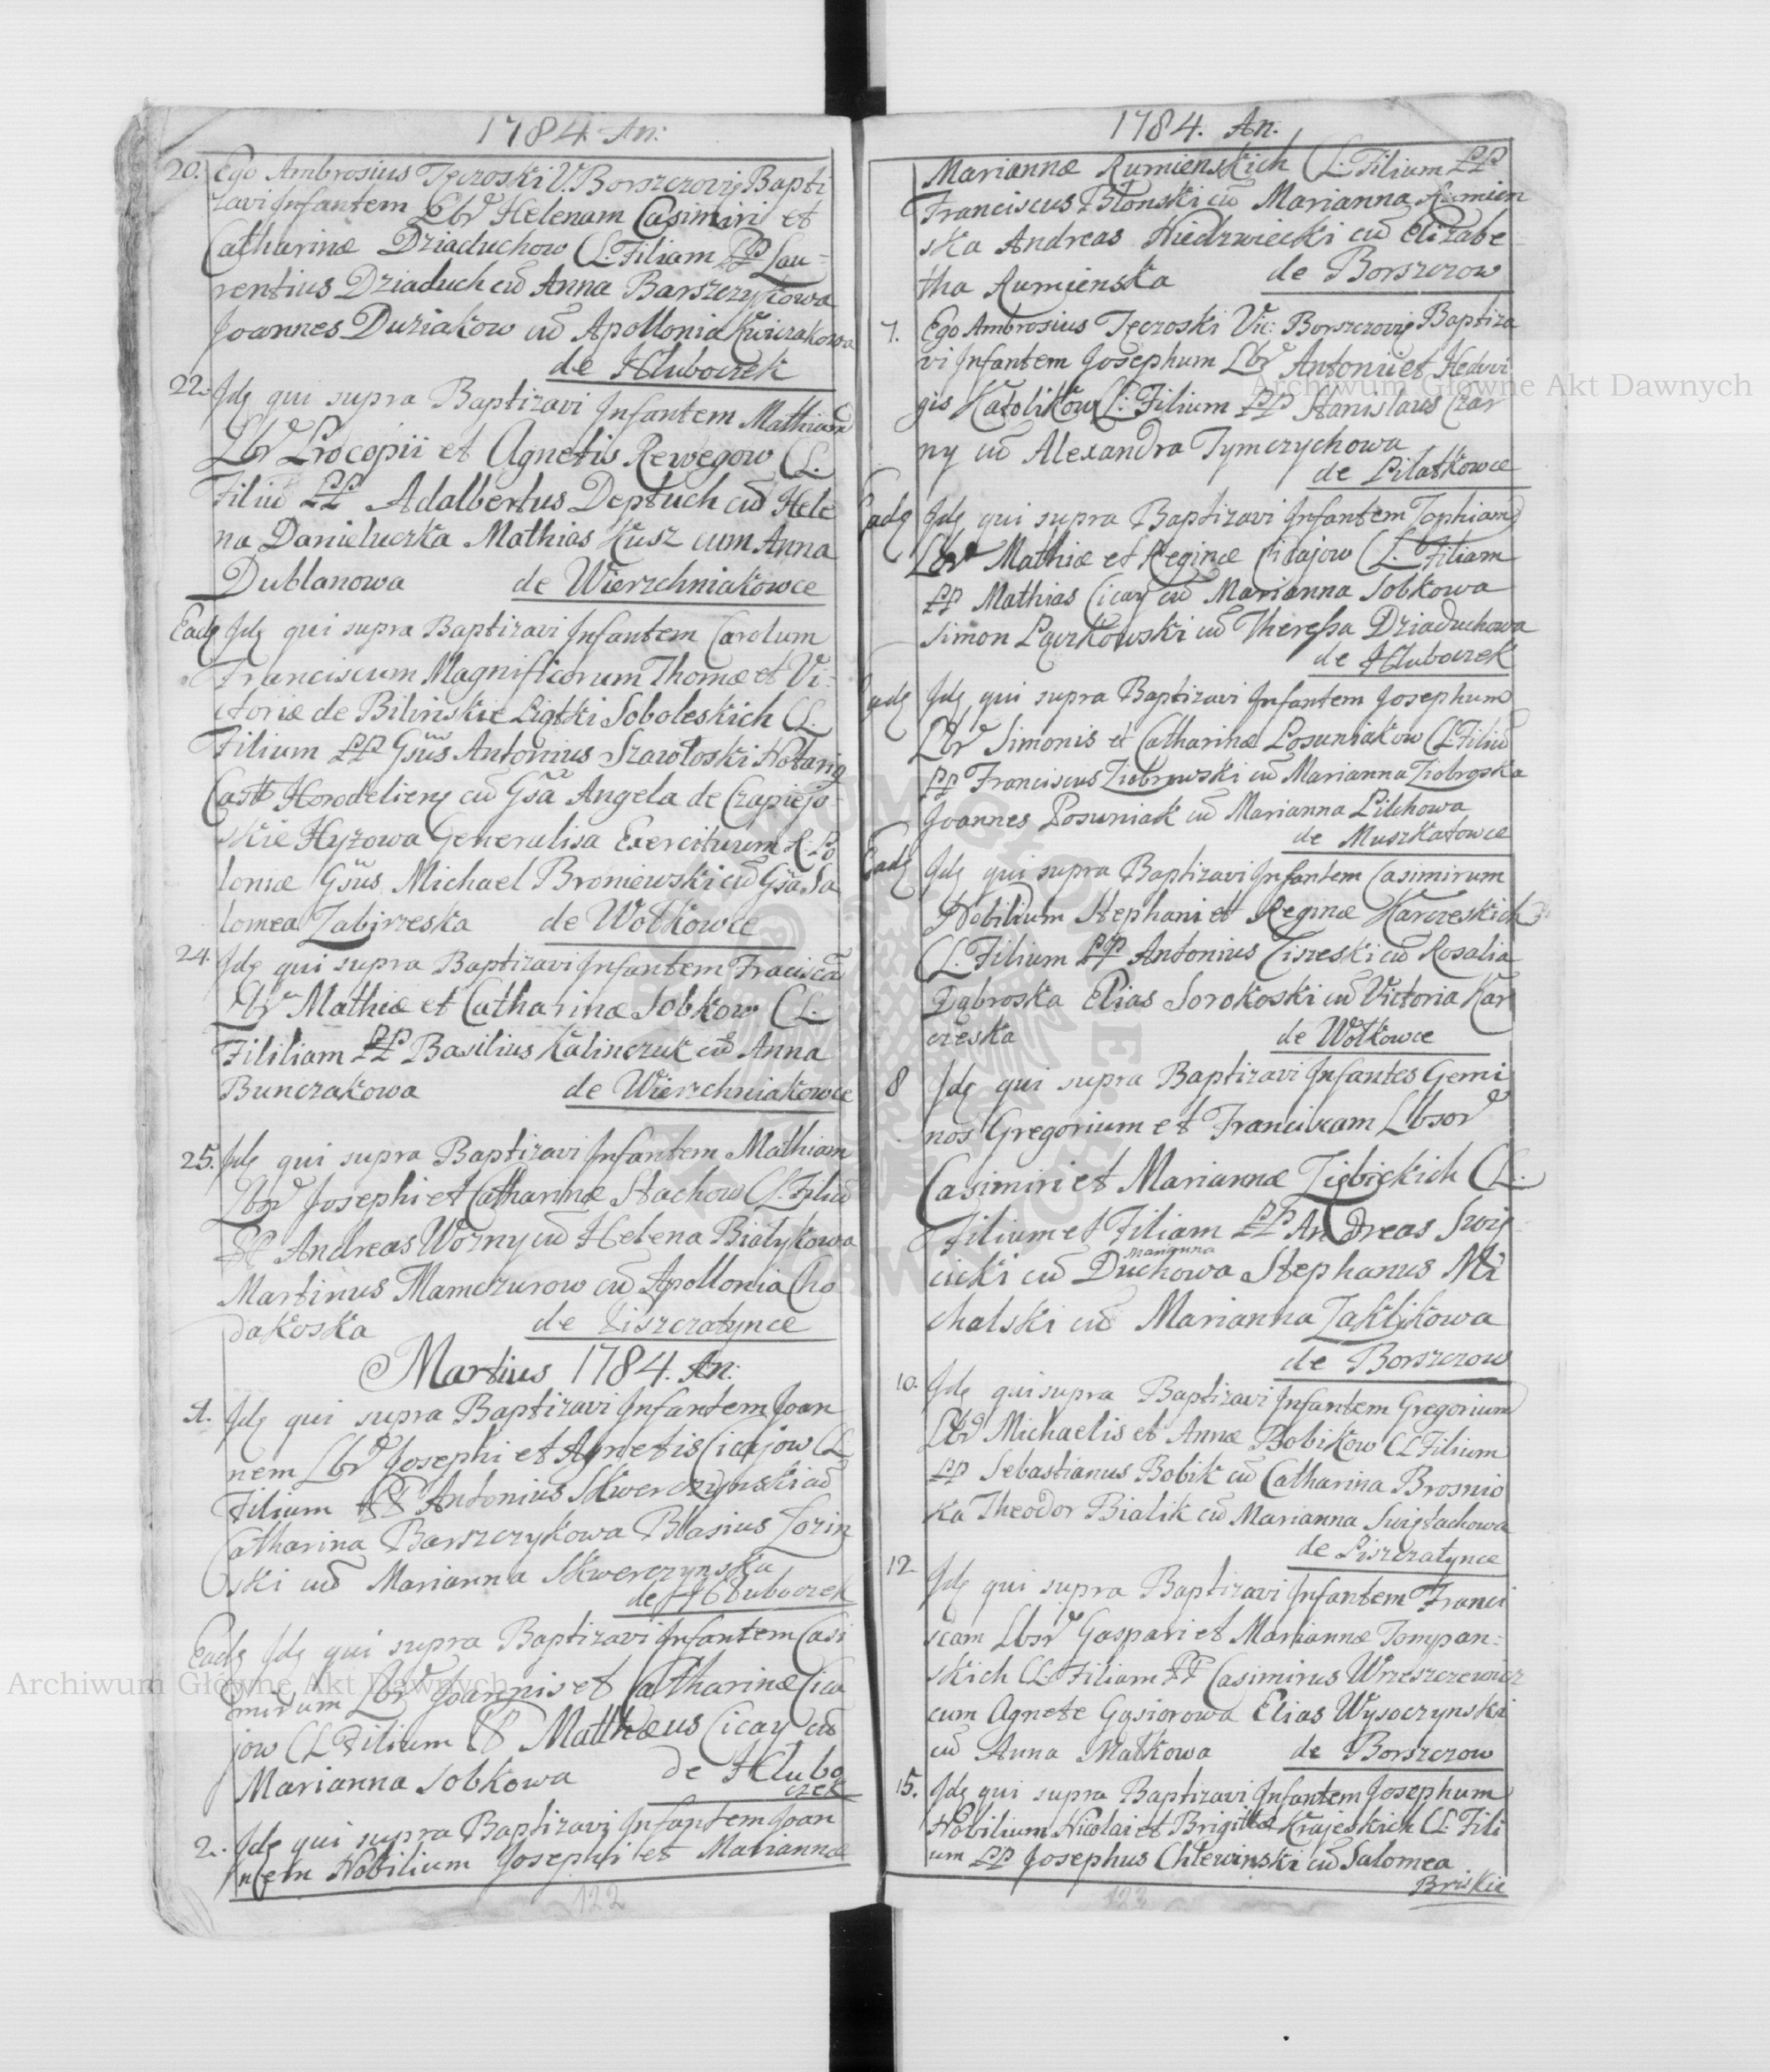 1784 An:
20. Ego Ambrosius Tęczoski V. Borszczovię Bapti
zavi Infantem Lbr̃ Helenam Casimiri et
Catharinæ Dziaduchow CL. Filiam PP Lau=
rentius Dziaduch cũ Anna Barszczykowa
Joannes Duziakow cũ Apollonia
de Hluboczek
22. Idę qui supra Baptizavi Infantem Mathiam
Lbr̃ Procopii et Agnetis Rewegow CL.
Filiũ PP Adalbertus Deptuch cũ Hele
na Danieluczka Mathias Kusz cum Anna
Dublanowa de Wierzchniakowce
Eadę Idę qui supra Baptizavi Infantem Carolum
Franciscum Magnificorum Thomæ et Vi=
ctoriæ de Bilinskie Ligtki Soboleskich CL.
Filium PP Gsũs Antonius Szawłoski Notarię
Cast Horodelieng cũ Gsã Angela de Czapiejo=
skie Hyzowa Generalisa Exercituum R. Po
loniæ Gsũs Michael Broniewski cũ Gsã Sa
lomea Zabirzeska de Wołkowce
24. Idę qui supra Baptizavi Infantem Fraciscã
Lbr̃ Mathiæ et Catharinæ Sobkow CL.
Fililiam PP Basilius Kalinczuk cũ Anna
Bunczakowa de Wierzchniakowce
25. Idę qui supra Baptizavi Infantem Mathiam
Lbr̃ Josephi et Catharinæ Stachow CL. Filiũ
PP Andreas Wozny cũ Helena Białykowa
Martinus Mamczurow cũ Apollonia Cho
dakoska de Piszczatynce
Martius 1784. An:
1. Idę qui supra Baptizavi Infantem Joan
nem Lbr̃ Josephi et Agnetis Cicajow CL
Filium PP Antonius Skwerczynski cũ
Catharina Barszczykowa Blasius Zozin
ski cũ Marianna Skwerczynska
de Hluboczek
Eadę Idę qui supra Baptizavi Infantem Casi
mirum Lbr̃ Joannis et Catharinæ Cica
jow CL Filium PP Matthæus Cicay cũ
Marianna Sobkowa de Hlubo
czek
2. Idę qui supra Baptizavi Infantem Joan
nem Nobilium Josephi et Mariannæ
122
1784. An.
Mariannæ Rumienskich CL. Filium PP
Franciscus Błonski cũ Marianna Rumien
ska Andreas Niedzwiecki cũ Elizabe
tha Rumienska de Borszczow
7. Ego Ambrosius Tęczoski Vic: Borszczovię Baptiza
vi Infantem Josephum Lbr̃ Antonii et Hedvi
gis Katolikow CL: Filium PP Stanislaus Czar
ny cũ Alexandra Tymczychowa
de Pilatkowce
Eadę Idę qui supra Baptizavi Infantem Zophiam
Lbr̃ Mathiæ et Reginæ Cicajow CL. Filiam
PP Mathias Cicay cũ Marianna Sobkowa
Simon Pączkowski cũ Theressa Dziaduchowa
de Hluboczek
Eadę Idę qui supra Baptizavi Infantem Josephum
Lbr̃ Simonis et Catharinæ Posuniakow CL Filiũ
PP Franciscus Ziobrowski cũ Marianna Ziobroska
Joannes Posuniak cũ Marianna Pilchowa
de Muszkatowce
Eadę Idę qui supra Baptizavi Infantem Casimirum
Nobilium Stephani et Reginæ Karczeskich
CL. Filium PP Antonius Ciszeski cũ Rosalia
Dąbroska Elias Sorokoski cũ Victoria Kar
czeska de Wołkowce
8 Idę qui supra Baptizavi Infantes Gemi
nos Gregorium et Franciscam Lbsor̃
Casimiri et Mariannæ Ziębickich CL.
Filium et Filiam PP Andreas Swię
cicki cũ Marianna Duchowa Stephanus Mi
chalski cũ Marianna Zaklikowa
de Borszczow
10. Idę qui supra Baptizavi Infantem Gregorium
Lbr̃ Michaelis et Annæ Bobikow CL Filium
PP Sebastianus Bobik cũ Catharina Brosnio
ka Theodor Bialik cũ Marianna Swiętachowa
de Piszczatynce
12 Idę qui supra Baptizavi Infantem Franci
scam Lbsr̃ Gaspari et Mariannæ Tompan=
skich CL. Filiam PP Casimirus Wrzeszczewicz
cum Agnete Gąsiorowa Elias Wysoczynski
cũ Anna Małkowa de Borszczow
15. Idę qui supra Baptizavi Infantem Josephum
Nobilium Nicolai et Brigittæ Krajeskich CL. Fili
um PP Josephus Chlewinski cũ Salomea
Briskie
123
Archiwum Główne Akt Dawnych
Archiwum Główne Akt Dawnych